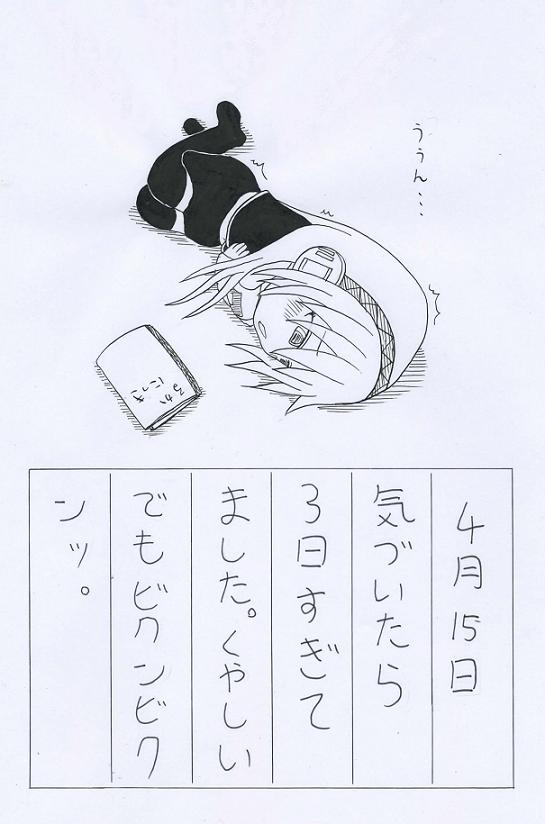 ううん…
4月15日
気づいたら
3日すぎて
ました。くやしい
でもビクンビク
ンッ。